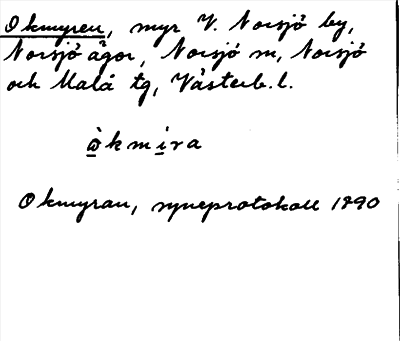 Okmyren, myr V. Norsjö by,
Norsjö ägor, Norsjö m, Norsjö
och Malå tg, Västerb. l.
ὼkmira
Okmyran, syneprotokoll 1890